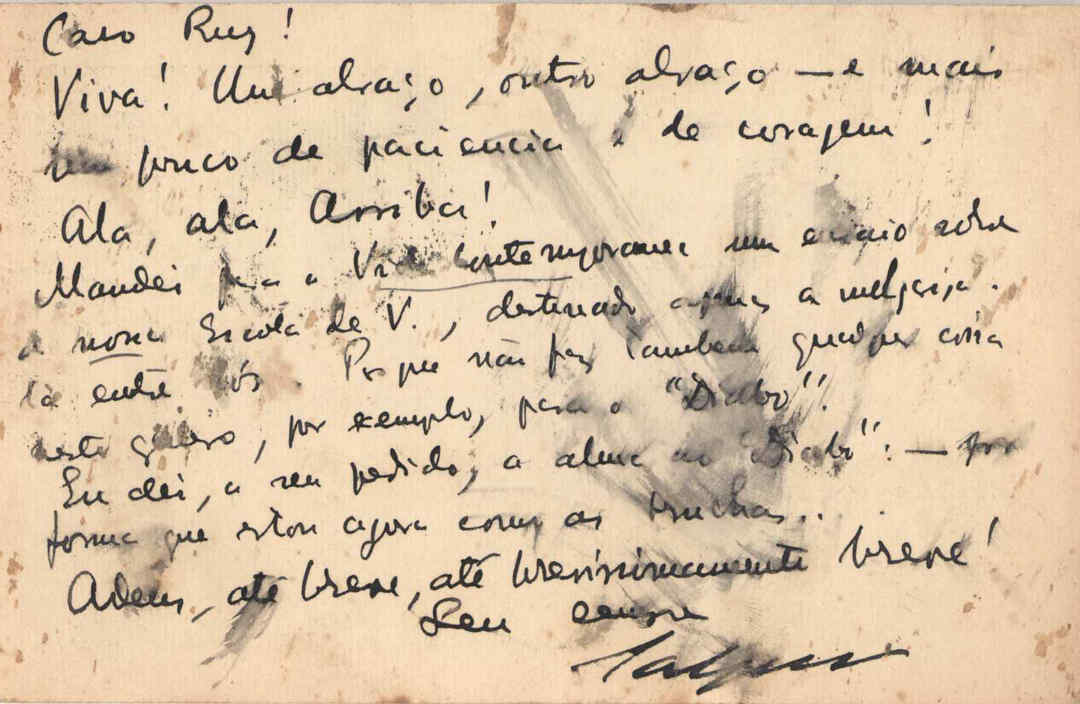 Caro Ruy!
Viva! Um abraço, outro abraço — e mais
um pouco de paciencia e de coragem!
Ala, ala, Arriba!
Mandei para a Vida Contemporanea um ensaio sobre
a nossa Escola de V., destinado apenas a
lá entre vós. Porque não faz tambem qualquer coisa
neste genero, por exemplo, para o "Diabo".
Eu dei, a seu pedido, a alma ao "Diabo": — por
forma que estou agora como as bruchas..
Adeus, até breve, até brevissimamente breve!
Seu sempre